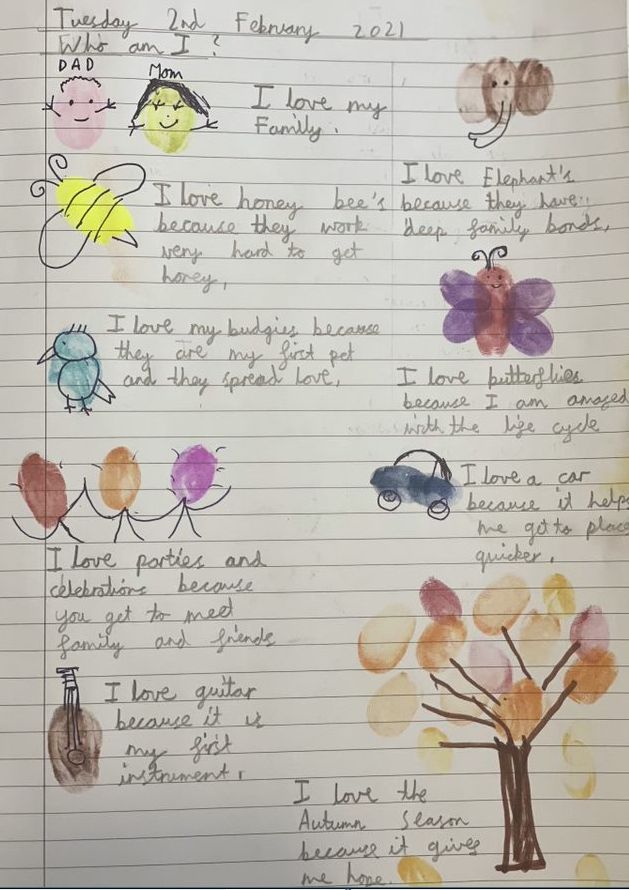 Tuesday 2nd February 2021
Who am I?
DAD
Mom
I love my
Family.
I love Elephant's
because they have
deep family bonds.
I love honey bee's
because they work
very hard to get
honey,
I love my budgies because
they are my first pet
and they spread love.
I love butterflies
because I am amazed
with the life cycle
I love a car
because it helps
me get to place
quicker.
I love parties and
celebrations because
you get to meet
family and friends
I love guitar
because it is
my first
instrument.
I love the
Autumn Season
because it gives
me hope.